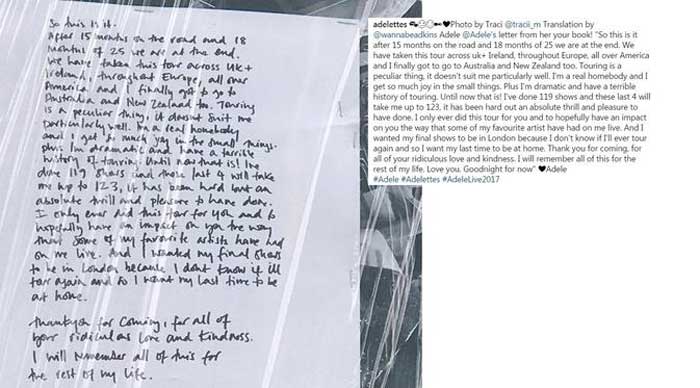 So this is it.
After 15 months on the road and 18
months of 25 we are at the end.
We have taken this tour across UK +
Ireland, throughout Europe, all over
America and I finally got to go to
Australia and New Zealand too. Touring
is a peculiar thing, it doesnt suit me
particularly well. Im a real homebody
and I get so much joy in the small things.
Plus Im dramatic and have a terrible
history of touring. Until now that is! Ive
done 119 shows and these last 4 will take
me up to 123, it has been hard but an
absolute thrill and pleasure to have done.
I only ever did this tour for you and to
hopefully have an impact on you the way
that some of my favourite artists have had
on me live. And I wanted my final shows
to be in London because I dont know if ill
tour again and so I want my last time to be
at home.
Thankyou for coming, for all of
your ridiculous love and kindness.
I will remember all of this for
the rest of my life.
adelettes Photo by Traci @tracii_m Translation by
@wannabeadkins Adele @Adele's letter from her your book! "So this is it
after 15 months on the road and 18 months of 25 we are at the end. We
have taken this tour across uk+ Ireland, throughout Europe, all over America
and I finally got to go to Australia and New Zealand too. Touring is a
peculiar thing, it doesn't suit me particularly well. I'm a real homebody and I
get so much joy in the small things. Plus I'm dramatic and have a terrible
history of touring. Until now that is! I've done 119 shows and these last 4 will
take me up to 123, it has been hard out an absolute thrill and pleasure to
have done. I only ever did this tour for you and to hopefully have an impact
on you the way that some of my favourite artist have had on me live. And I
wanted my final shows to be in London because I don't know if I'll ever tour
again and so I want my last time to be at home. Thank you for coming, for
all of your ridiculous love and kindness. I will remember all of this for the
rest of my life. Love you. Goodnight for now" ♥Adele
#Adele #Adelettes #AdeleLive2017